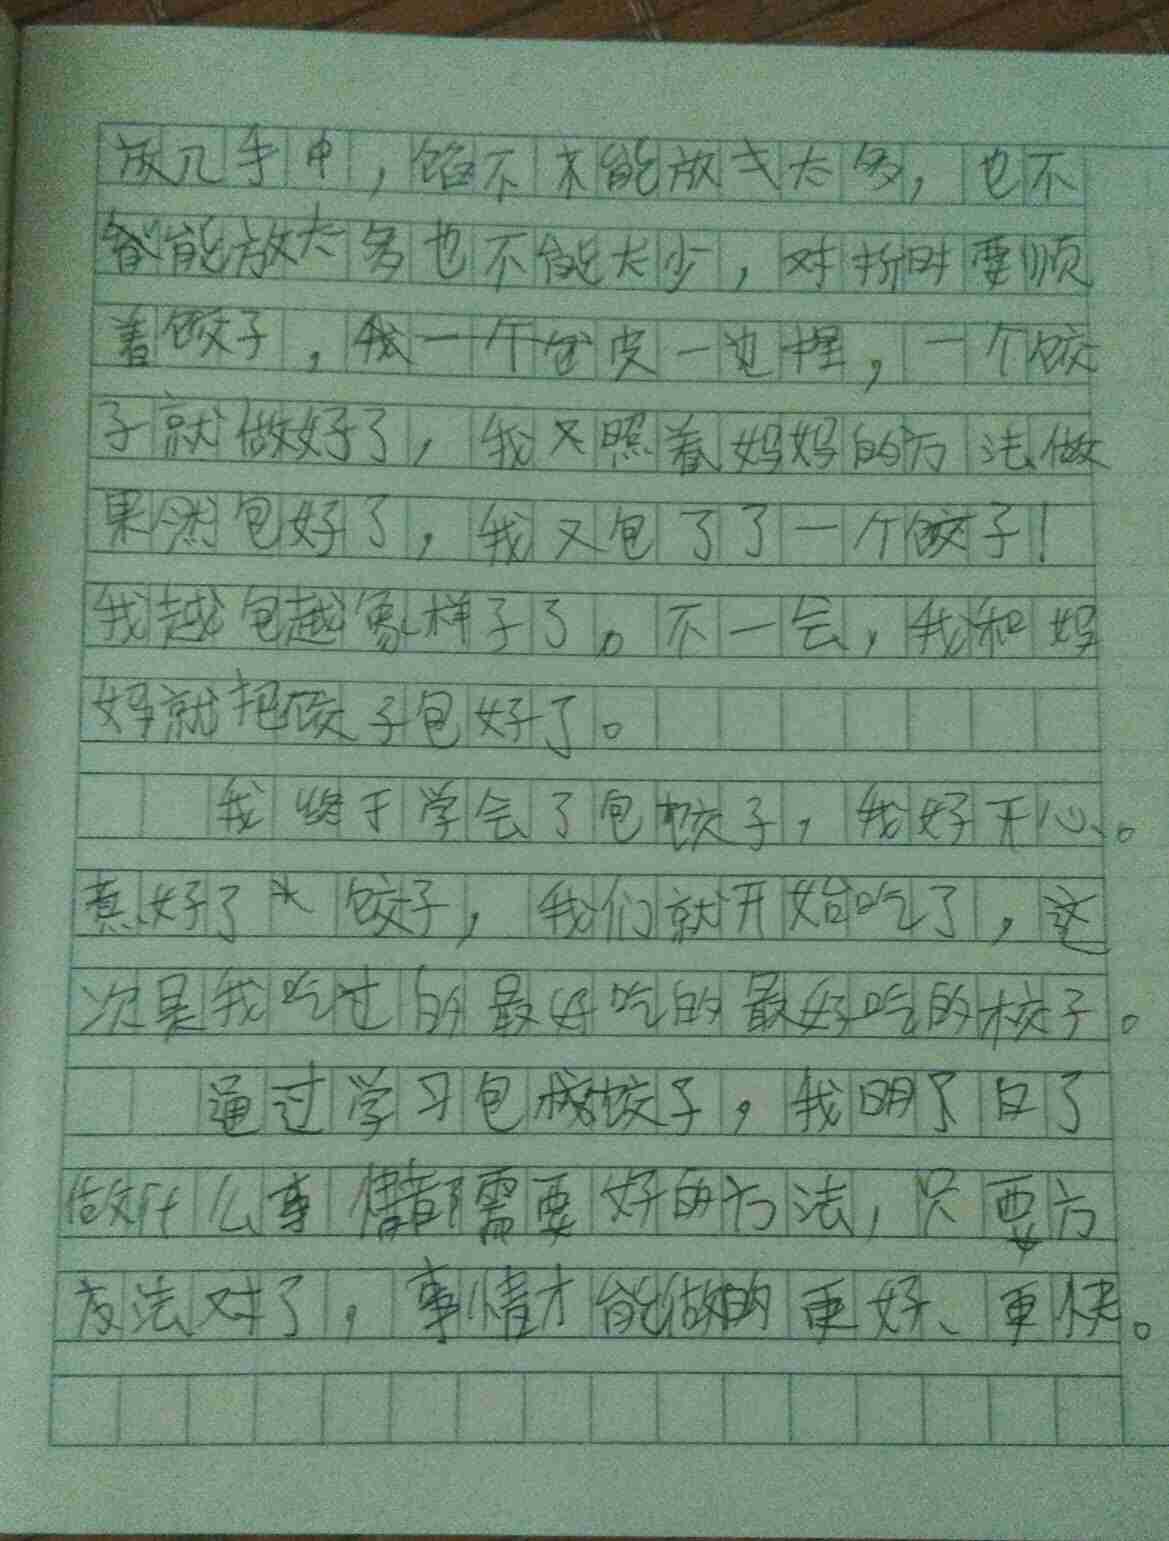 放几手中，馅不能放太多，也不
能放太多也不能太少，对折时要顺
着饺子，我一个包皮一边捏，一个饺
子就做好了，我又照着妈妈的方法做
果然包好了，我又包了了一个饺子！
我越包越象样子了。不一会，我和妈
妈就把饺子包好了。
我终于学会了包饺子，我好开心。
真好了 饺子，我们就开始吃了，这
次是我吃过的最好吃的最好吃的校子。
通过学习包饺子，我明了白了
做什么事情都需要好的方法，只要方
方法对了，事情才能做的更好、更快。